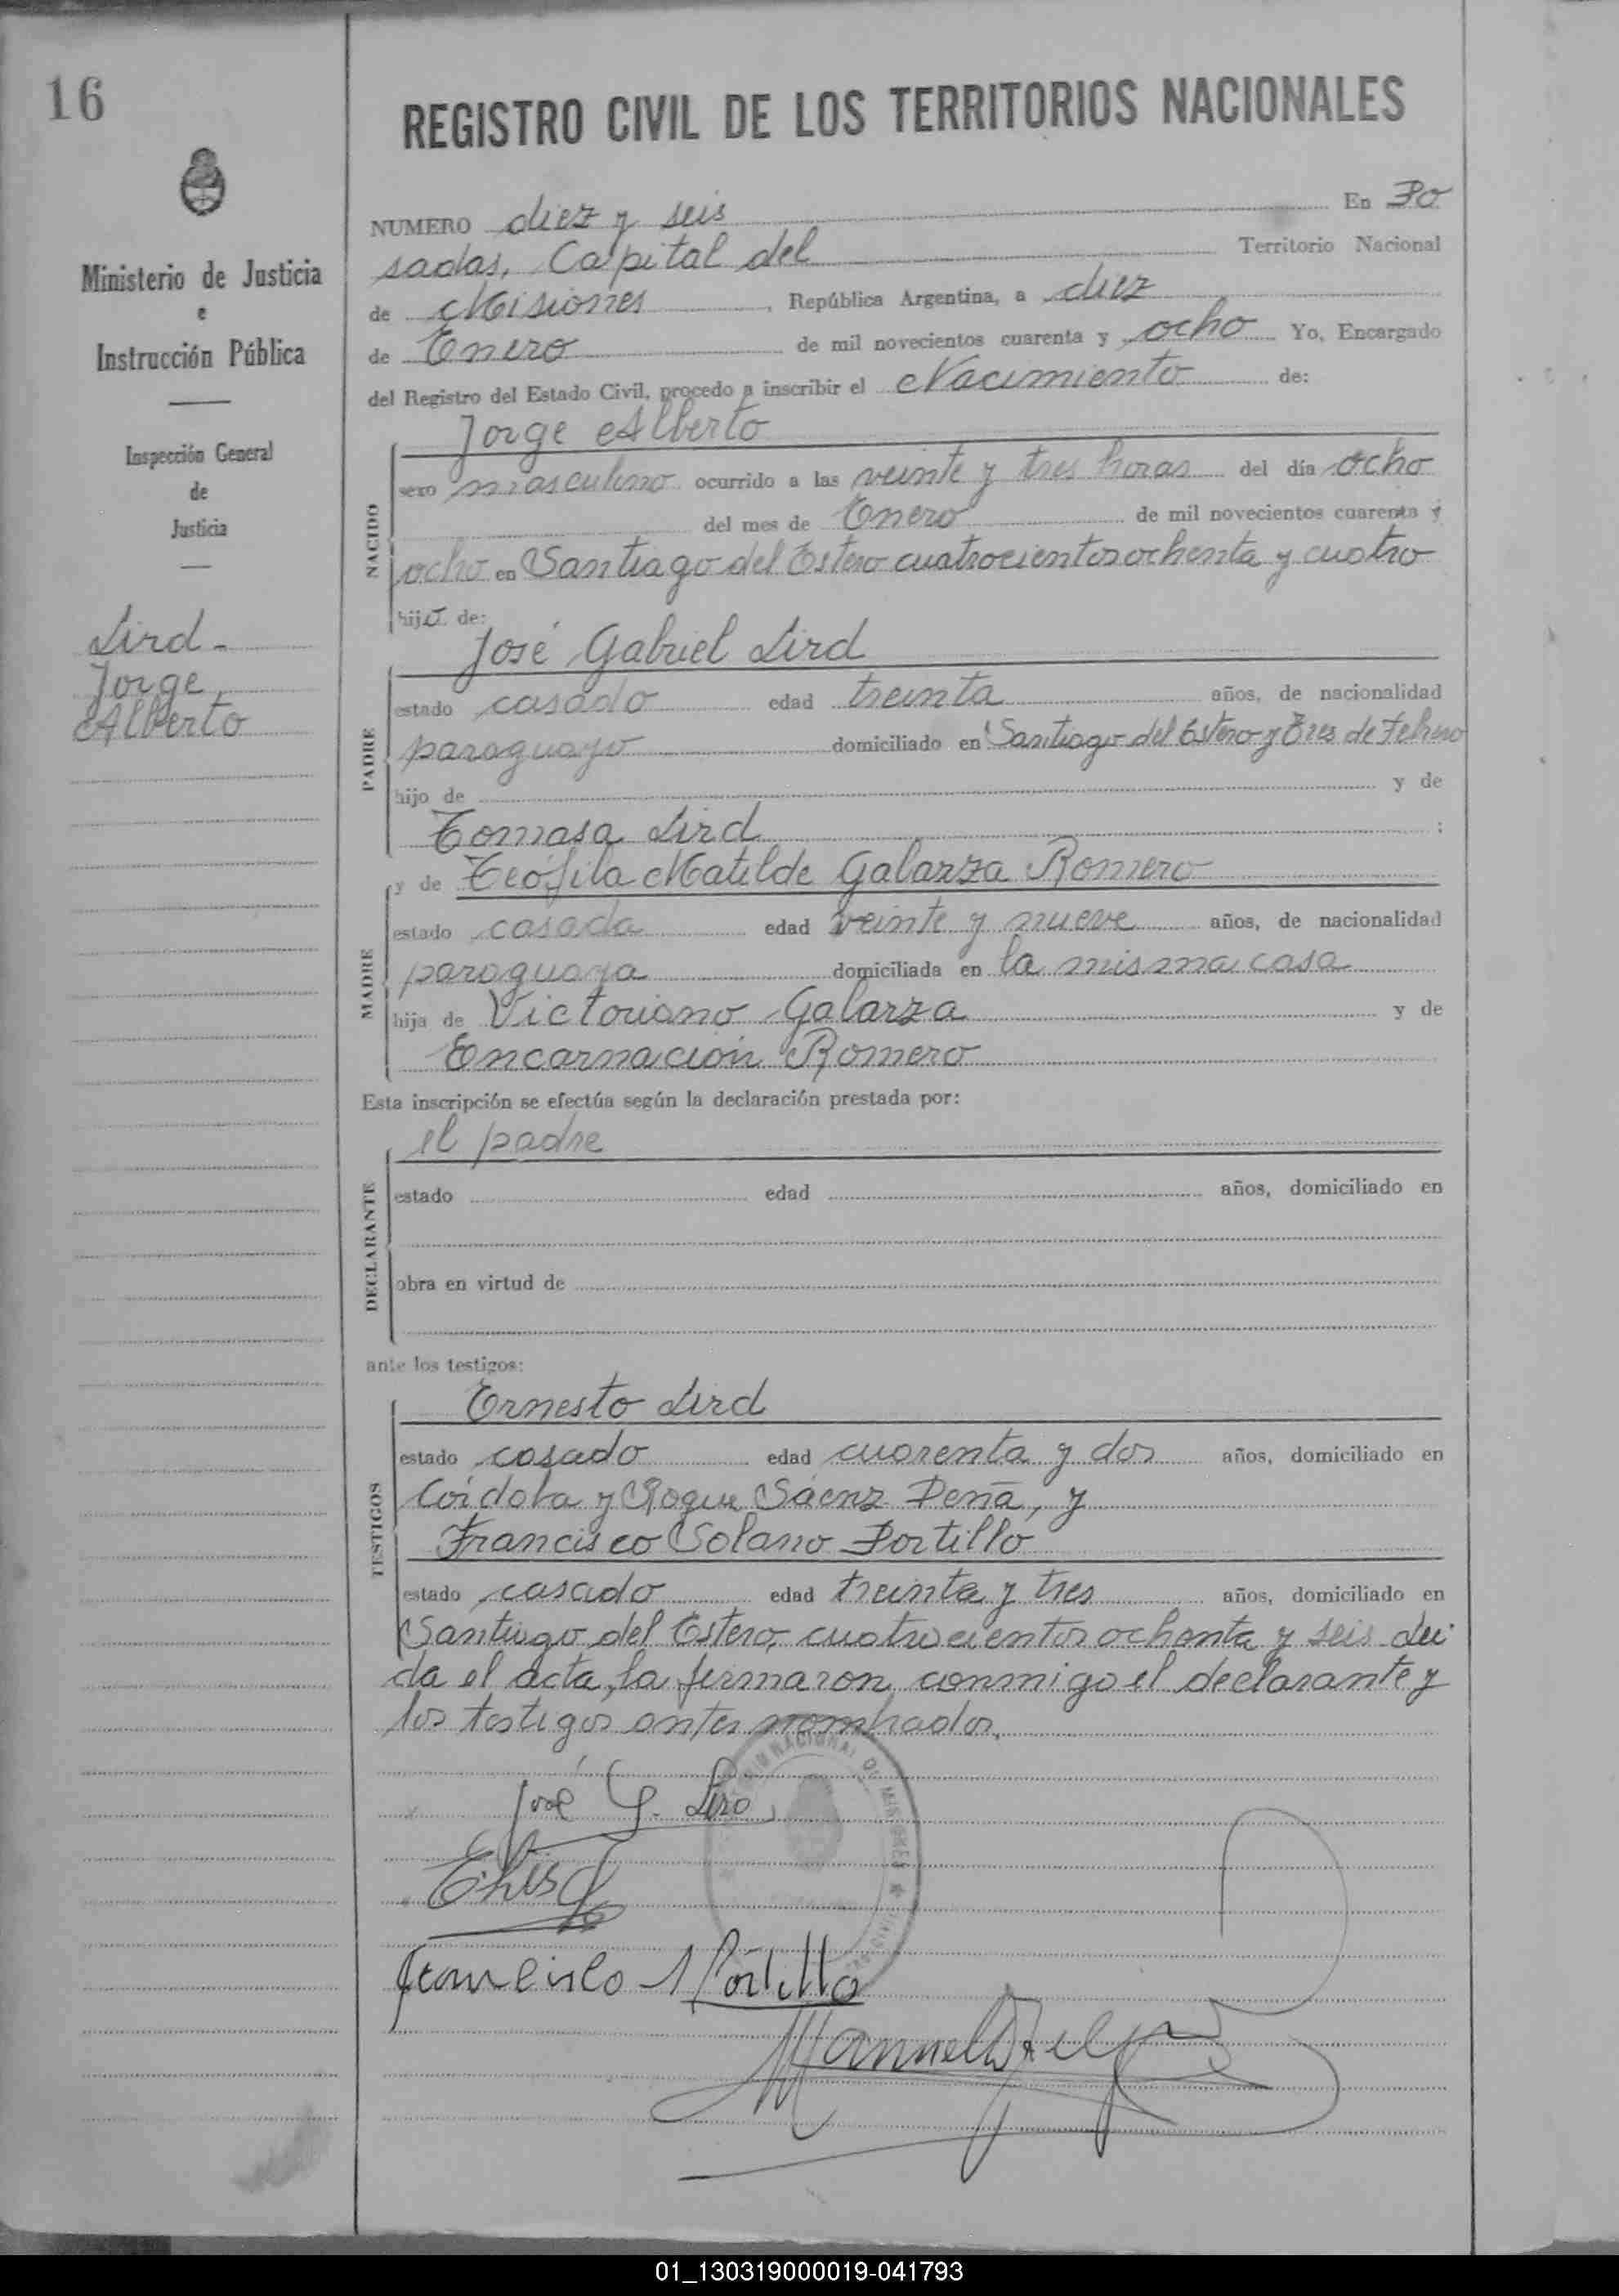 16
REGISTRO CIVIL DE LOS TERRITORIOS NACIONALES
Ministerio de Justicia
e
Instrucción Pública
Inspección General
de
Justicia
Lird-
Jorge
Alberto
NUMERO diez y seis En Po
sadas, Capital del Territorio Nacional
de Misiones, República Argentina, a diez
de Enero de mil novecientos cuarenta y ocho Yo, Encargado
del Registro del Estado Civil, procedo a inscribir el Nacimiento de:
NACIDO
Jorge Alberto
sexo masculino ocurrido a las veinte y tres horas del día ocho
del mes de Enero de mil novecientos cuarenta y
ocho en Santiago del Estero cuatrocientos ochenta y cuatro
hijo de:
PADRE
José Gabriel Lird
estado casado edad treinta años, de nacionalidad
paraguayo domiciliado en Santiago del Estero y Tres de Febrero
hijo de y de
Tomasa Lird ;
MADRE
y de Teófila Matilde Galarza Romero
estado casada edad veinte y nueve años, de nacionalidad
paraguaya domiciliada en la misma casa
hija de Victoriano Galarza y de
Encarnación Romero
Esta inscripción se efectúa según la declaración prestada por:
DECLARANTE
el padre
estado edad años, domiciliado en
obra en virtud de
ante los testigos:
TESTIGOS
Ernesto Lird
estado casado edad cuarenta y dos años, domiciliado en
Córdoba y Roque Sáenz Peña, y
Francisco Solano Portillo
estado casado edad treinta y tres años, domiciliado en
Santiago del Estero, cuatrocientos ochenta y seis. Leí
da el acta, la firmaron conmigo el declarante y
los testigos antes nombrados.
NACIONAL DE MISIONES
José G. Lird
Francisco S Portillo
Manuel
01_130319000019-041793